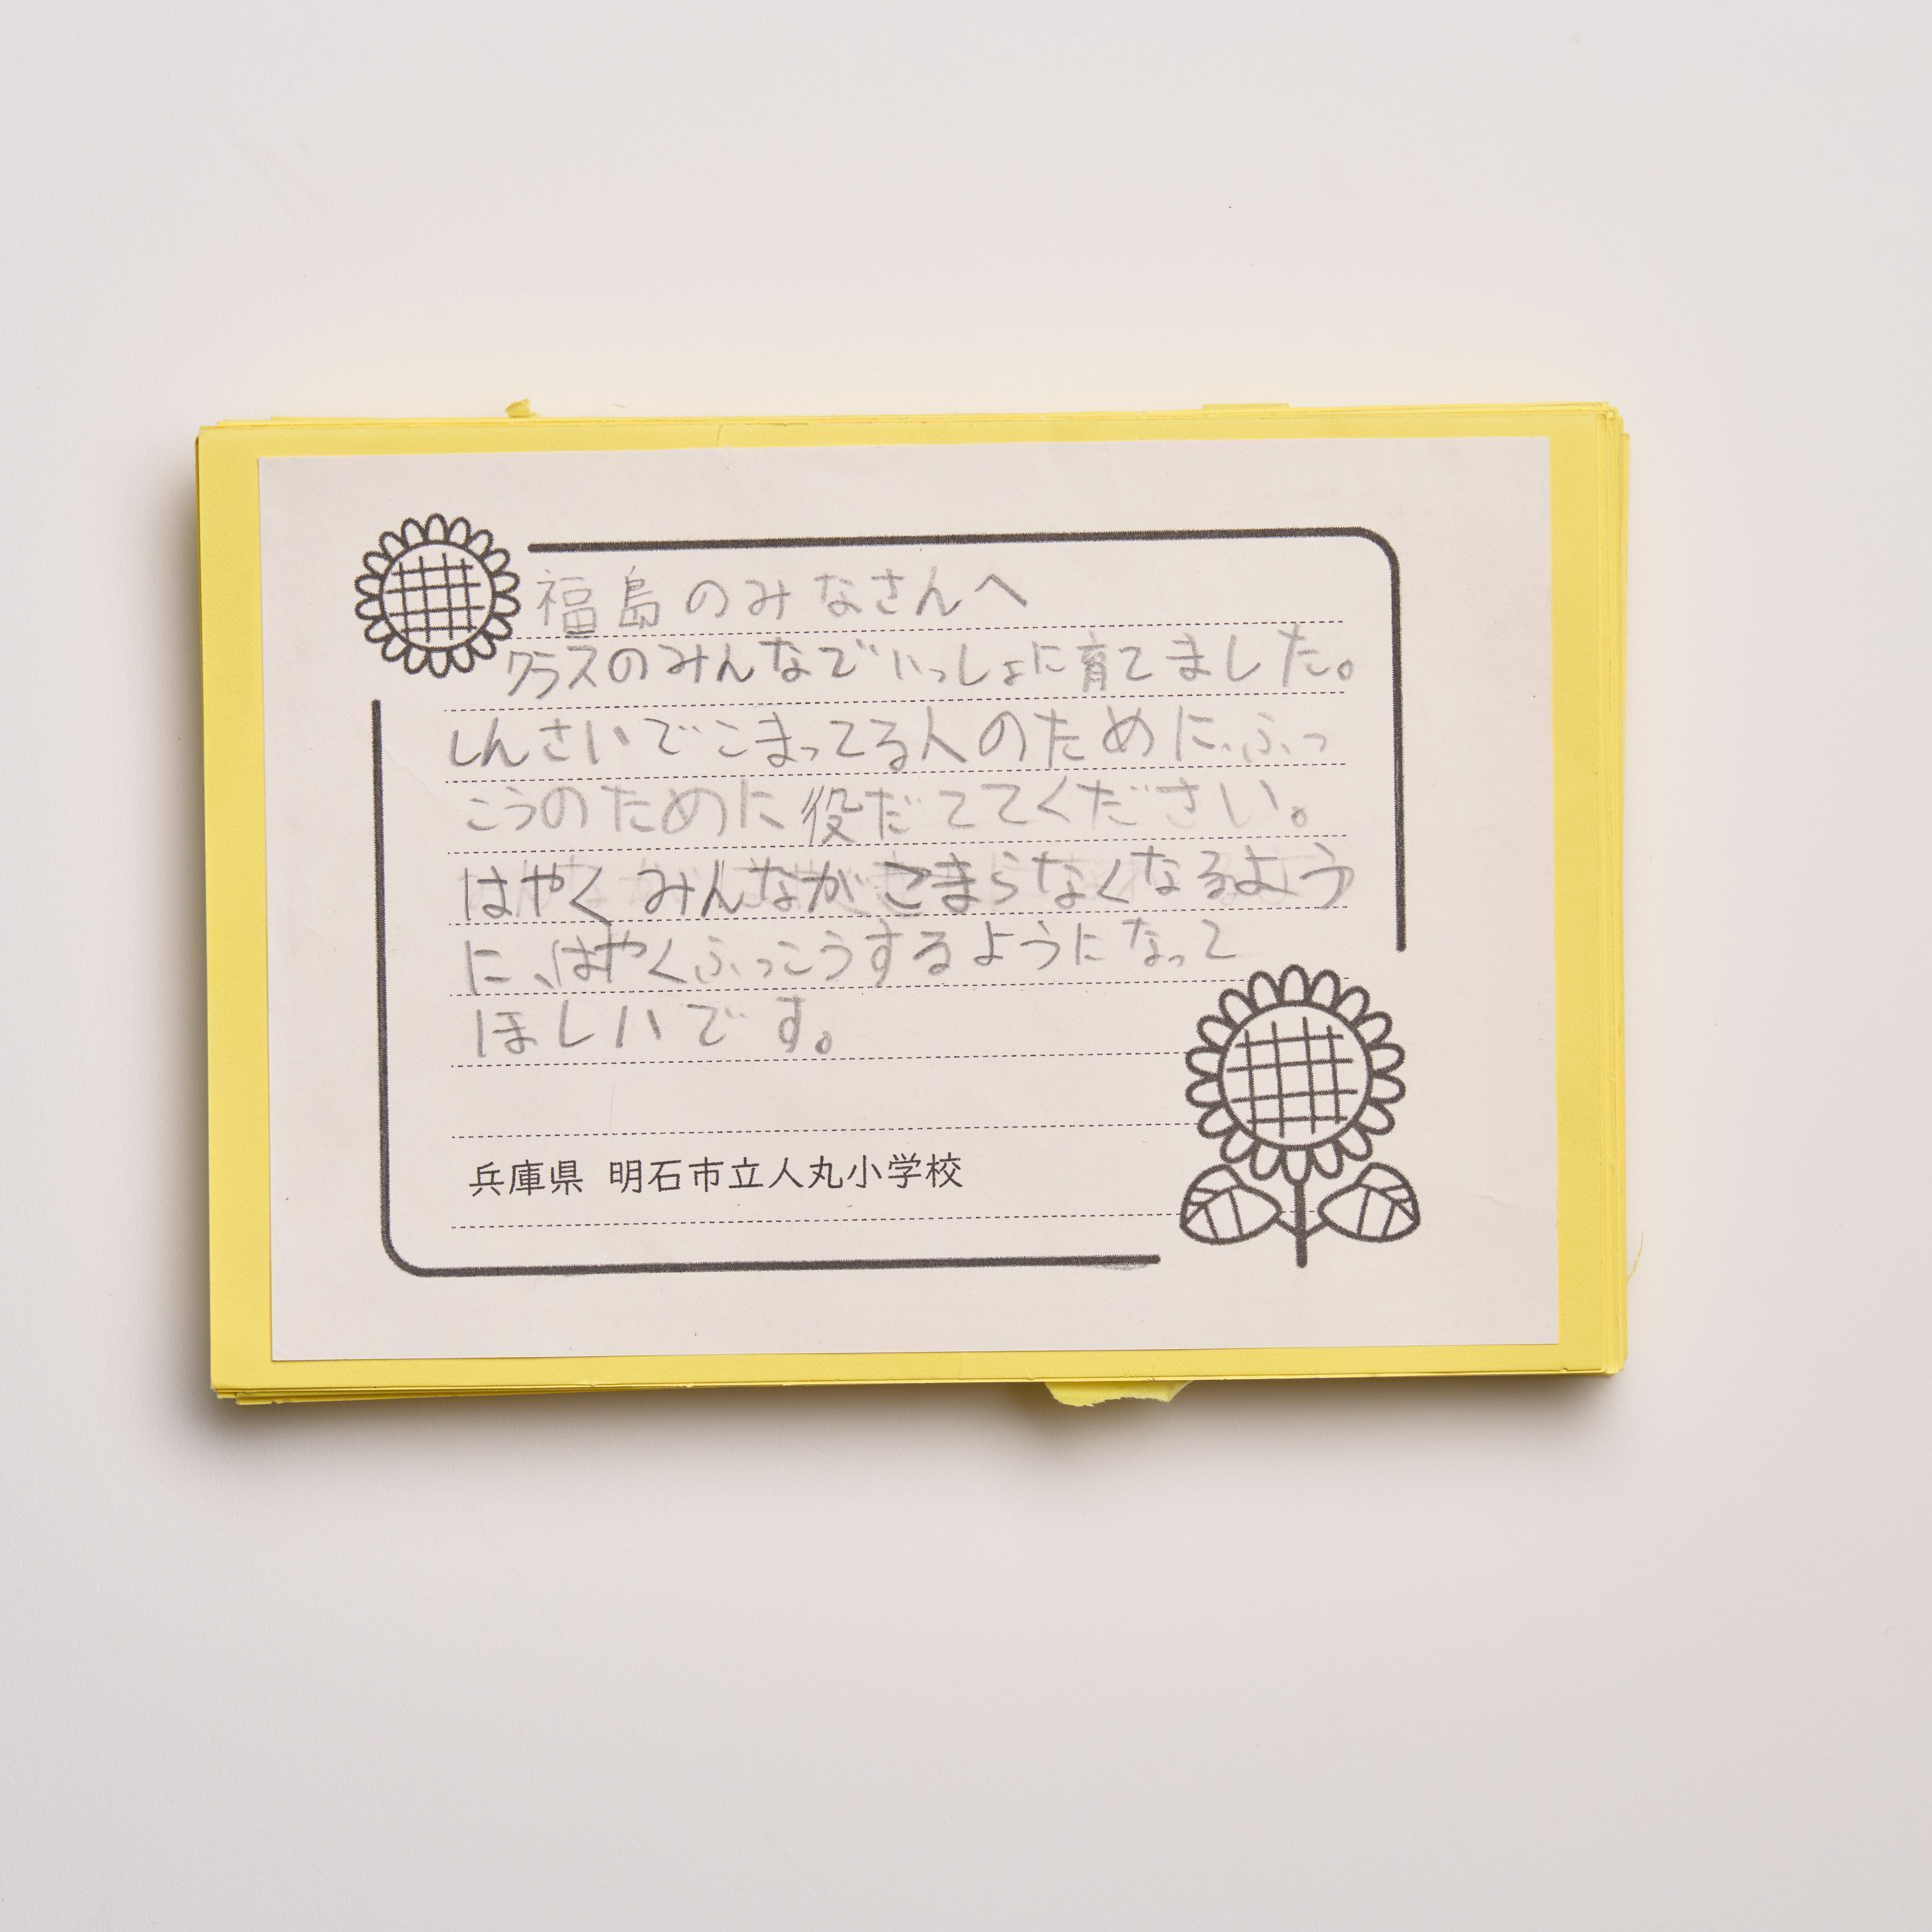 福島のみなさんへ
クラスのみんなでいっしょに育てました。
しんさいでこまってる人のために、ふっ
こうのために役だててください。
はやくみんながこまらなくなるよう
に、はやくふっこうするようになって
ほしいです。
兵庫県 明石市立人丸小学校